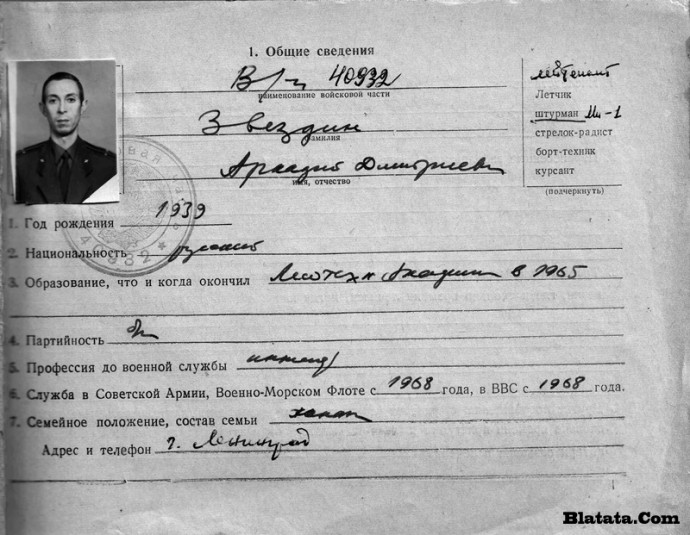 1. Общие сведения
В/ч 40932
наименование войсковой части
Звездин
фамилия
Аркадий Дмитриевич
имя, отчество
лейтенант
Летчик
штурман Ми-1
стрелок-радист
борт-техник
курсант
(подчеркнуть)
1. Год рождения 1939
2. Национальность русский
3. Образование, что и когда окончил Лесотехн Академия в 1965
4. Партийность б/п
5. Профессия до военной службы инженер
6. Служба в Советской Армии, Военно-Морском Флоте с 1968 года, в ВВС с 1968 года.
7. Семейное положение, состав семьи женат
Адрес и телефон г. Ленинград
40932
Blatata.Com